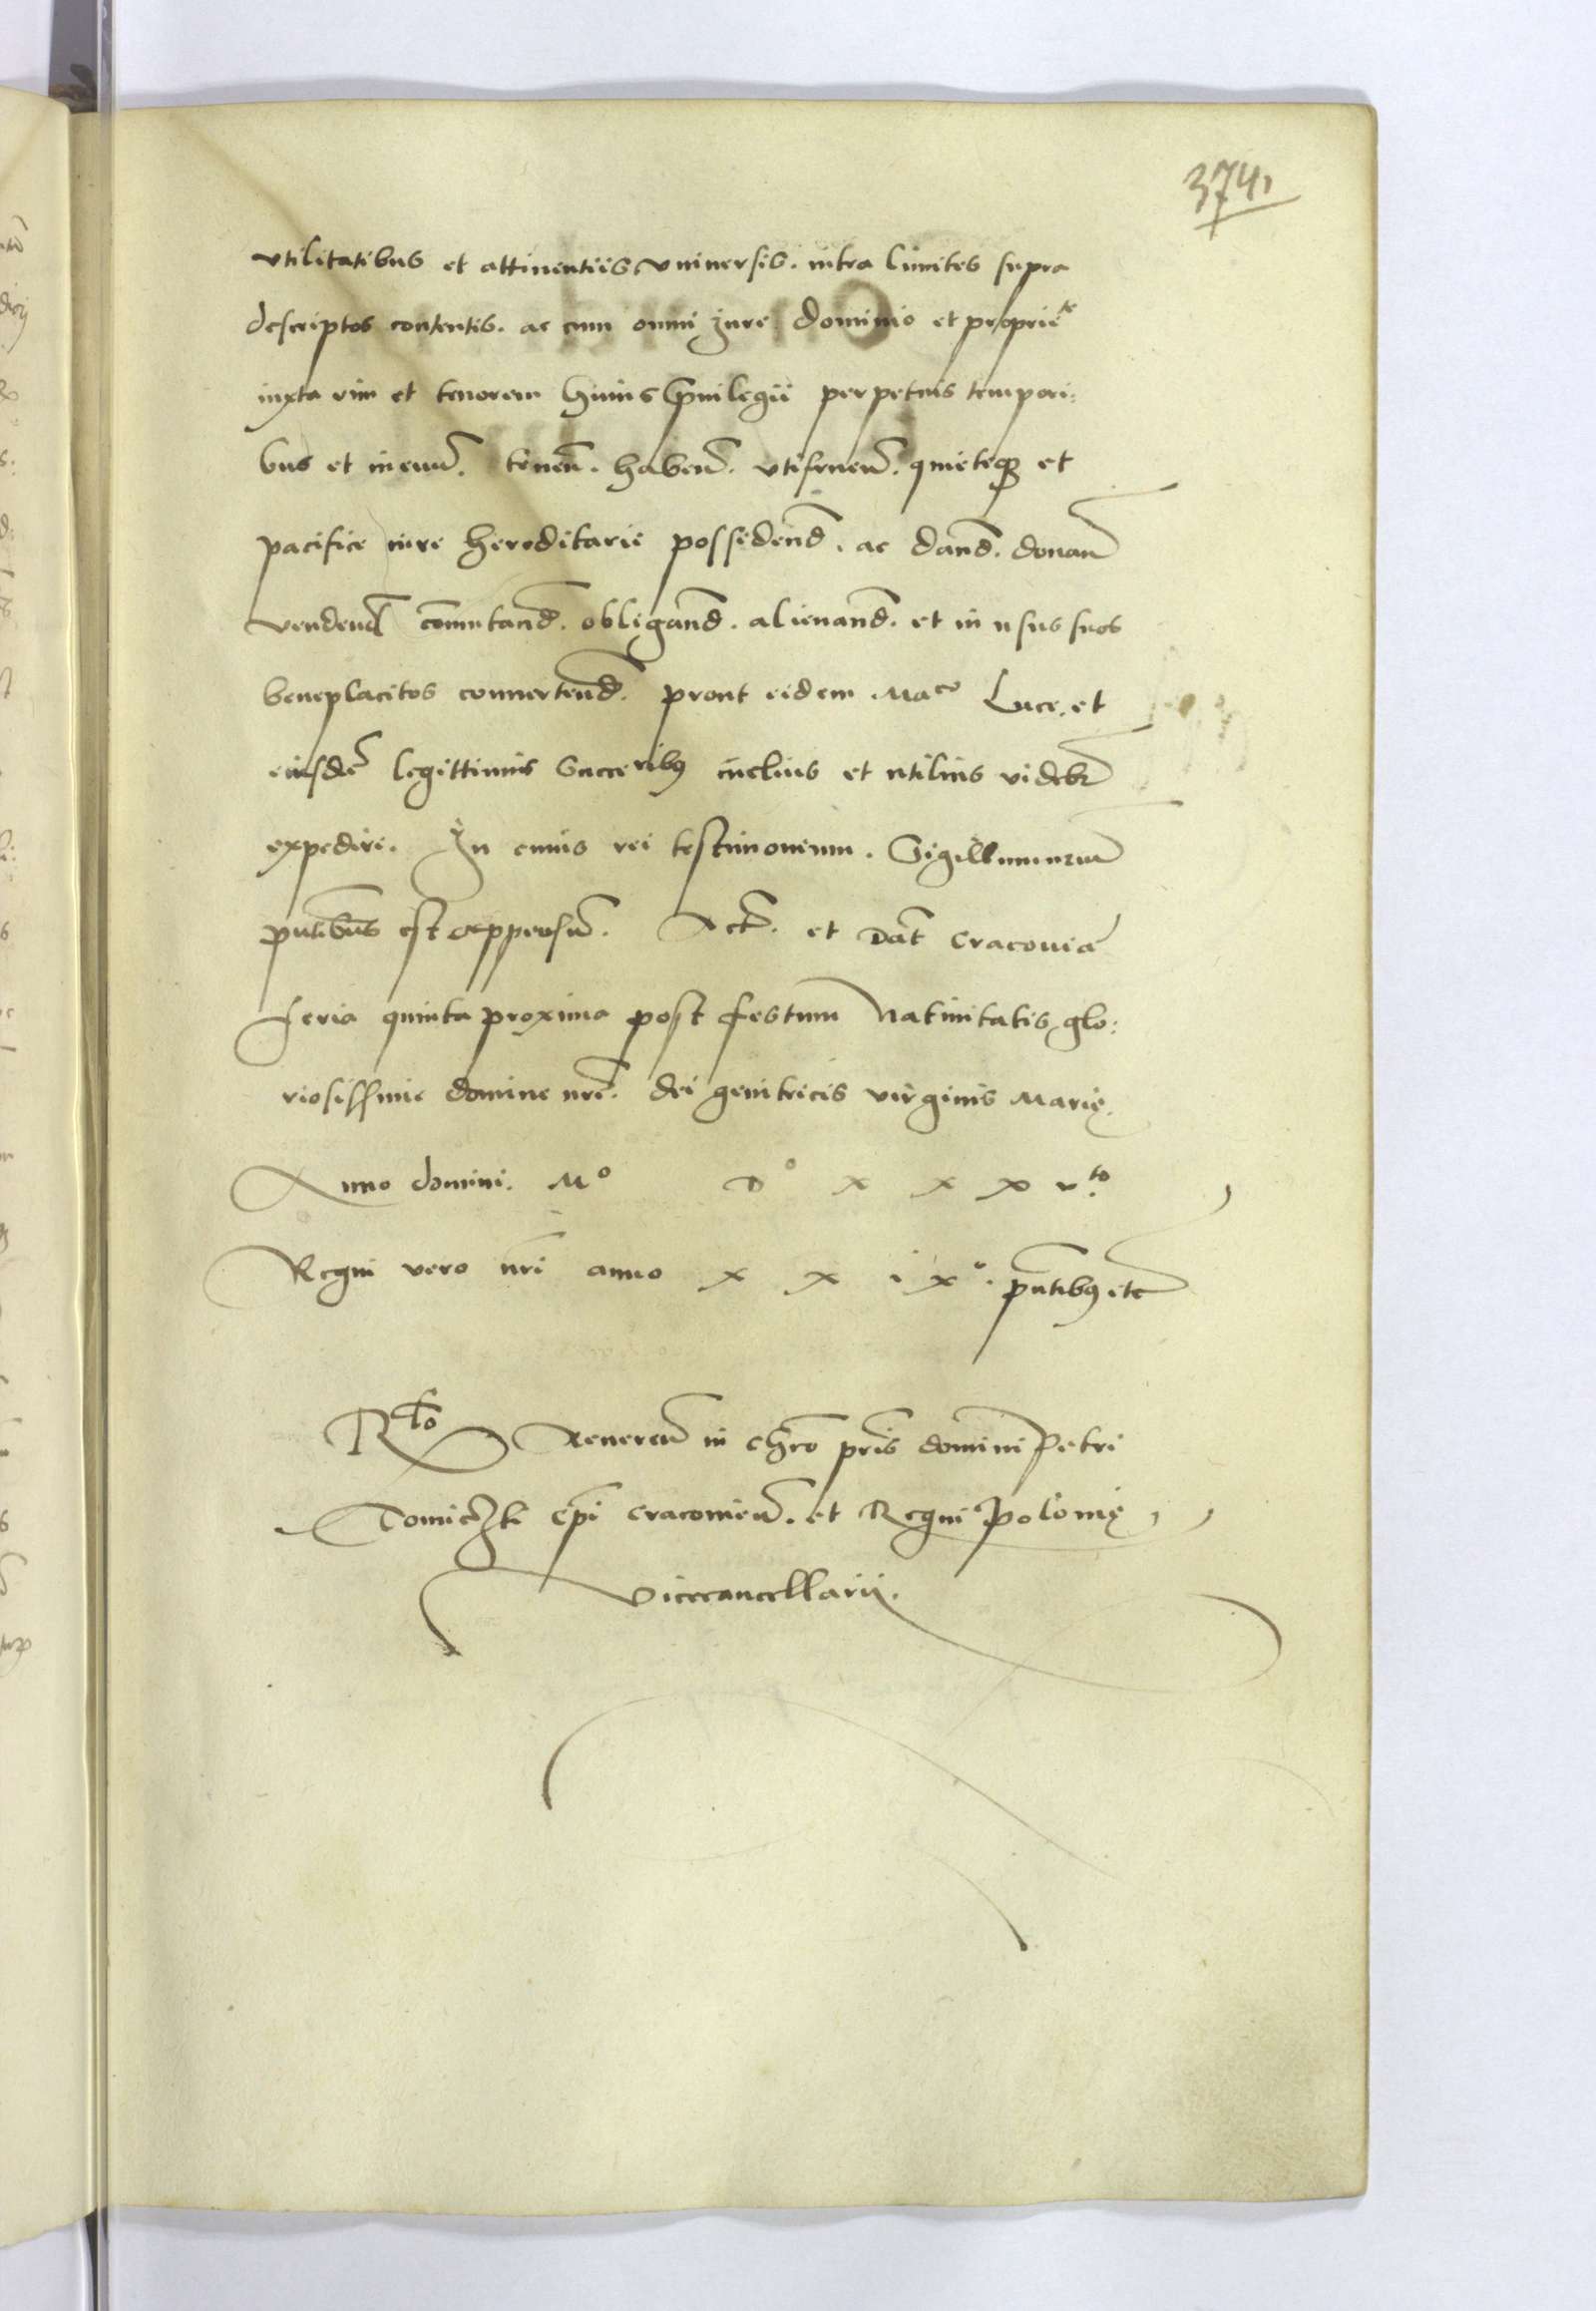 3741
vtilitatibus et attinentiis vniuersis. intra limites supra
descriptos contentis. ac cum omni Jure dominio et proprie^te
iuxta vim et tenorem huius priuilegii perpetuis tempori:
bus et ineuū. tenen̄. haben̄. vtifruen̄. quieteq3 et
pacifice iure hereditarie possidend̄. ac dand̄. donan̄
vendend̄ cōmutand̄. obligand̄. alienand̄. et in usus suos
beneplacitos conuertend̄. prout eidem Ma^co Luce. et
eiusdē legittimis Succe^ribus melius et utilius videbr̄
expedire. In cuius rei testimonium. Sigillum nrūm
pn̄tibus est appensū. Actū. et Dat̄ Cracouie
feria quinta proxima post festum Natiuitatis glo:
riosissime domine nrē. dei genitricis virginis Marię.
Anno domini. M^o D^o x x x v^to.
Regni vero nr̄i anno x x i x^o. pn̄tibus etc
R^cto Reueren̄ in chrō pr̄is domini Petri
Tomiczki Ep̄i Cracouien̄. et Regni Polonię
Vicecancellarij.